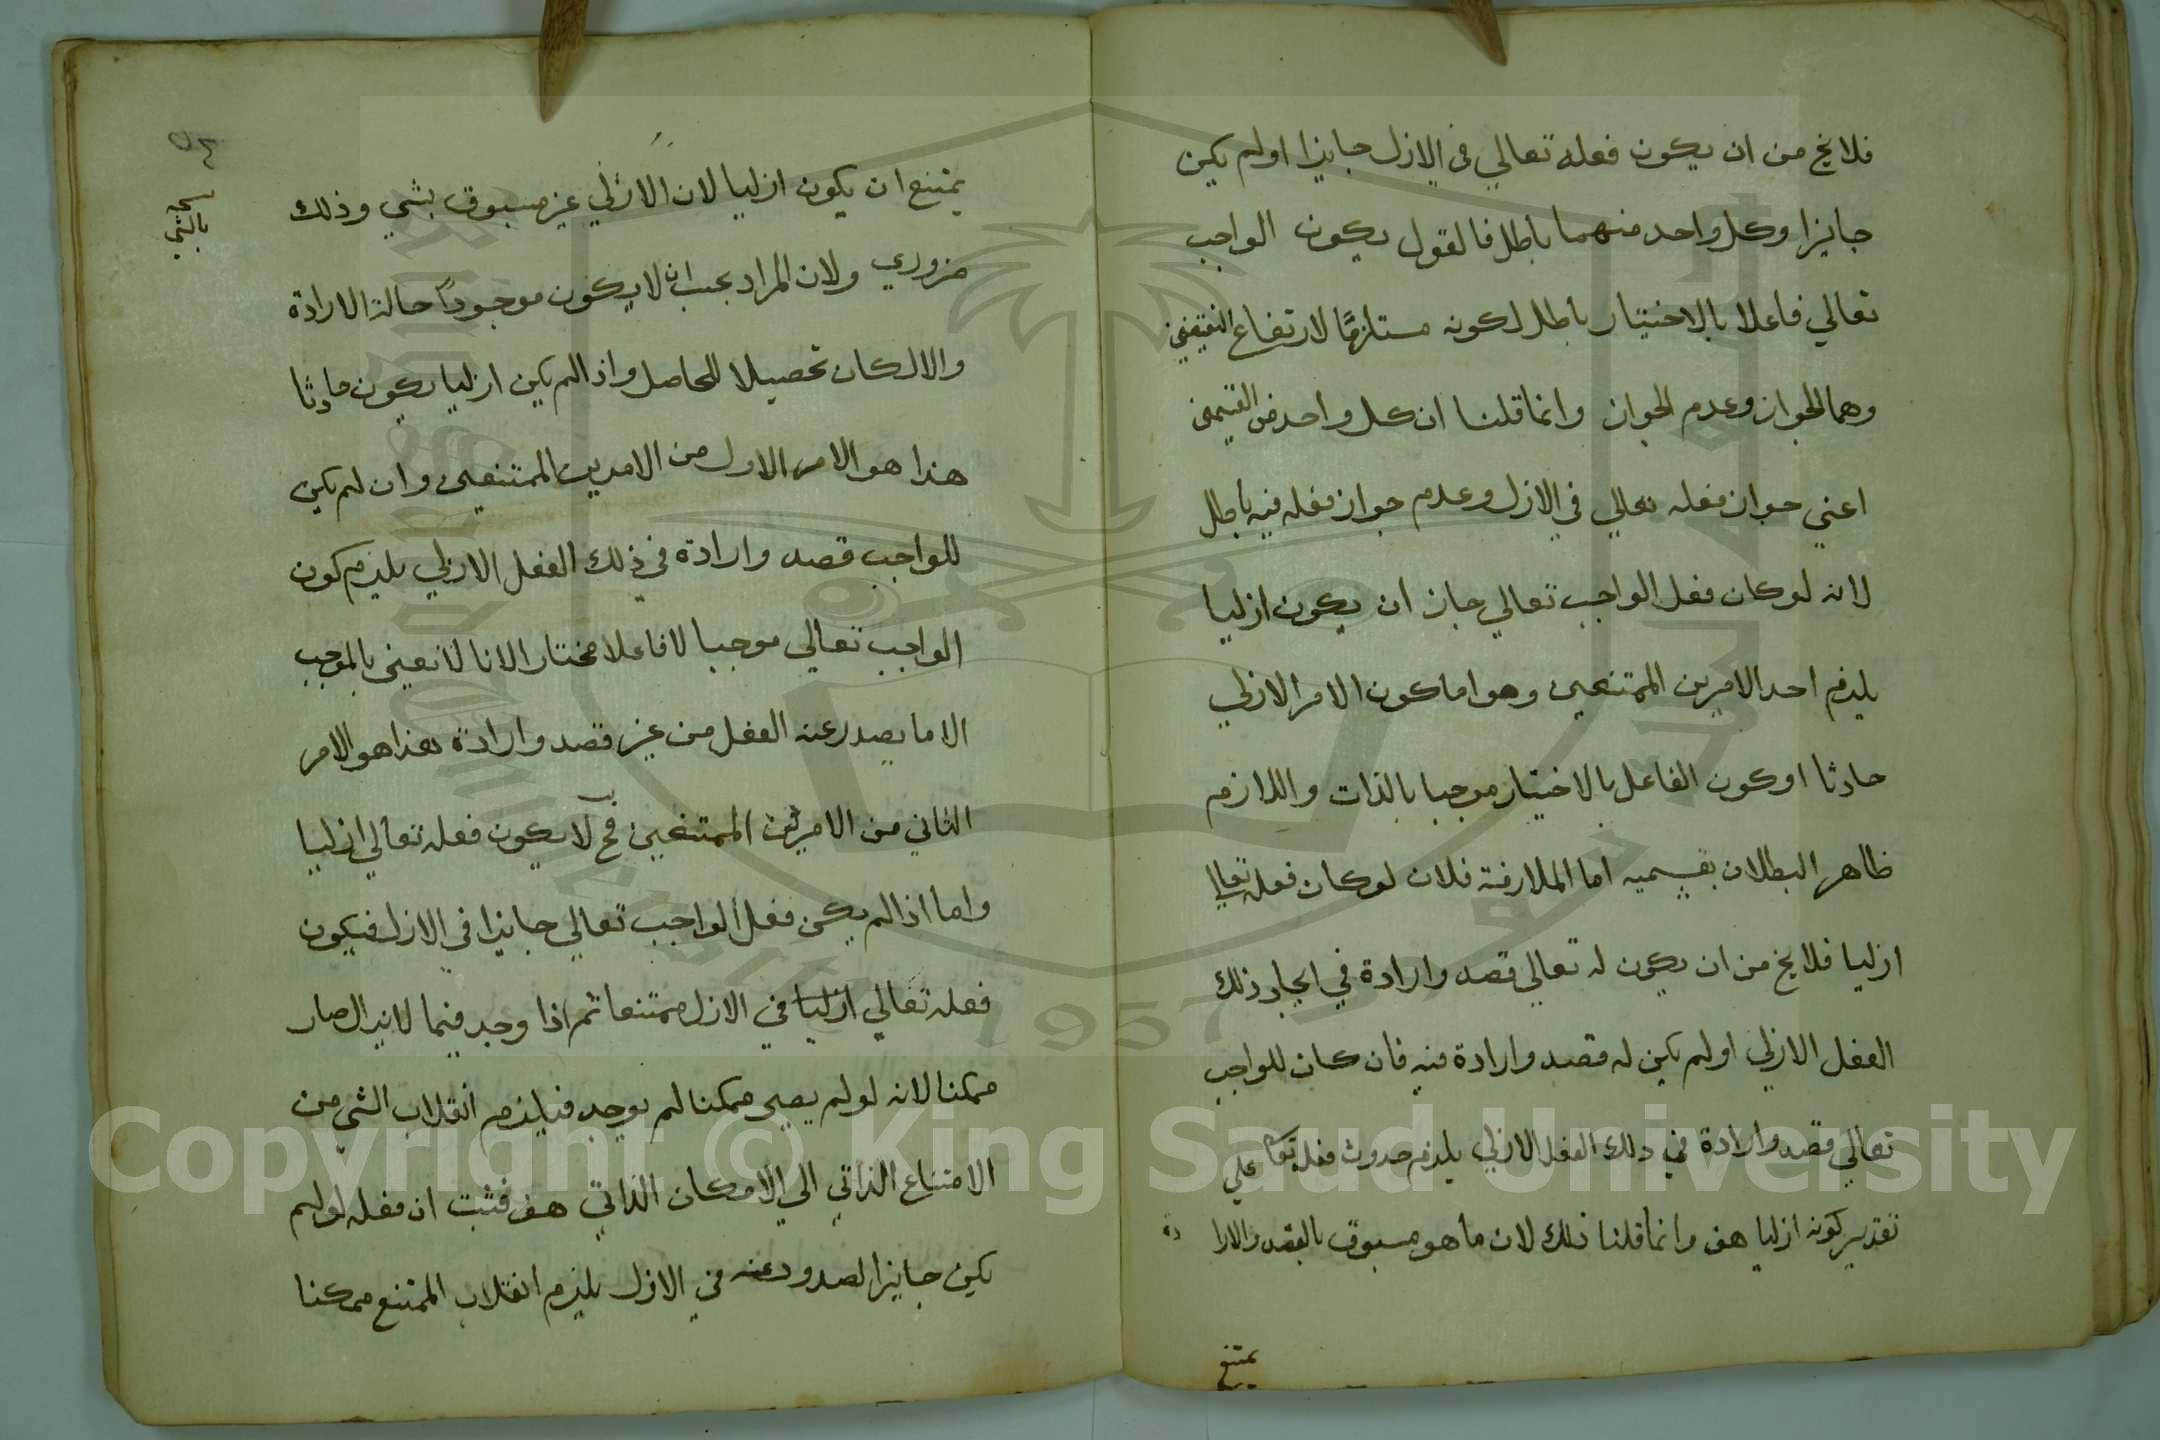 فلا يخ من ان يكون فعله تعالي في الازل جايزا اولم يكن
جايزا وكل واحد منهما باطل فالقول بكون الواجب
تعالي فاعلا بالاختيار باطل لكونه مستلزمًا لارتفاع النقيضين
وهما الجواز وعدم الجواز وانما قلنا ان كل واحد من القسمين
اعني جواز فعله تعالي في الازل وعدم جواز فعله فيه باطل
لانه لو كان فعل الواجب تعالي جاز ان يكون ازليا
يلزم احد الامرين الممتنعين وهو اما كون الامر الازلي
حادثا او كون الفاعل بالاختيار موجبا بالذات واللازم
ظاهر البطلان بقسميه اما الملازمة فلان لو كان فعله تعالي
ازليا فلا يخ من ان يكون له تعالي قصد وارادة في ايجاد ذلك
الفعل الازلي اولم يكن له قصد وارادة فيه فان كان للواجب
تعالي قصد وارادة في ذلك الفعل الازلي يلزم حدوث فعله تعا علي
تقدير كونه ازليا هف وانما قلنا ذلك لان ما هو مسبوق بالقصد والارا دة
يمتنع
نسخه
بالشي
يمتنع ان يكون ازليا لان الازلي غير مسبوق بشي وذلك
ضروري ولان المراد يجب ان لا يكون موجوداً حالة الارادة
والا لكان تحصيلا للحاصل واذا لم يكن ازليا يكون حادثا
هذا هو الامر الاول من الامرين الممتنعين وان لم يكن
للواجب قصد وارادة في ذلك الفعل الازلي يلزم كون
الواجب تعالي موجبا لا فاعلا مختارا لانا لا نعني بالموجب
الا ما يصدر عنه الفعل من غير قصد وارادة هذا هو الامر
الثاني من الامرين الممتنعين فح لا يكون فعله تعالي ازليا
واما اذا لم يكن فعل الواجب تعالي جايزا في الازل فيكون
فعله تعالي ازليا في الازل ممتنعا ثم اذا وجد فيما لايزال صار
ممكنا لانه لو لم يصير ممكنا لم يوجد فيلزم انقلاب الشي من
الامتناع الذاتي الي الامكان الذاتي هف فثبت ان فعله لو لم
يكن جايزا لصدوره عنه في الازل يلزم انقلاب الممتنع ممكنا
Copyright © King Saud University
1957